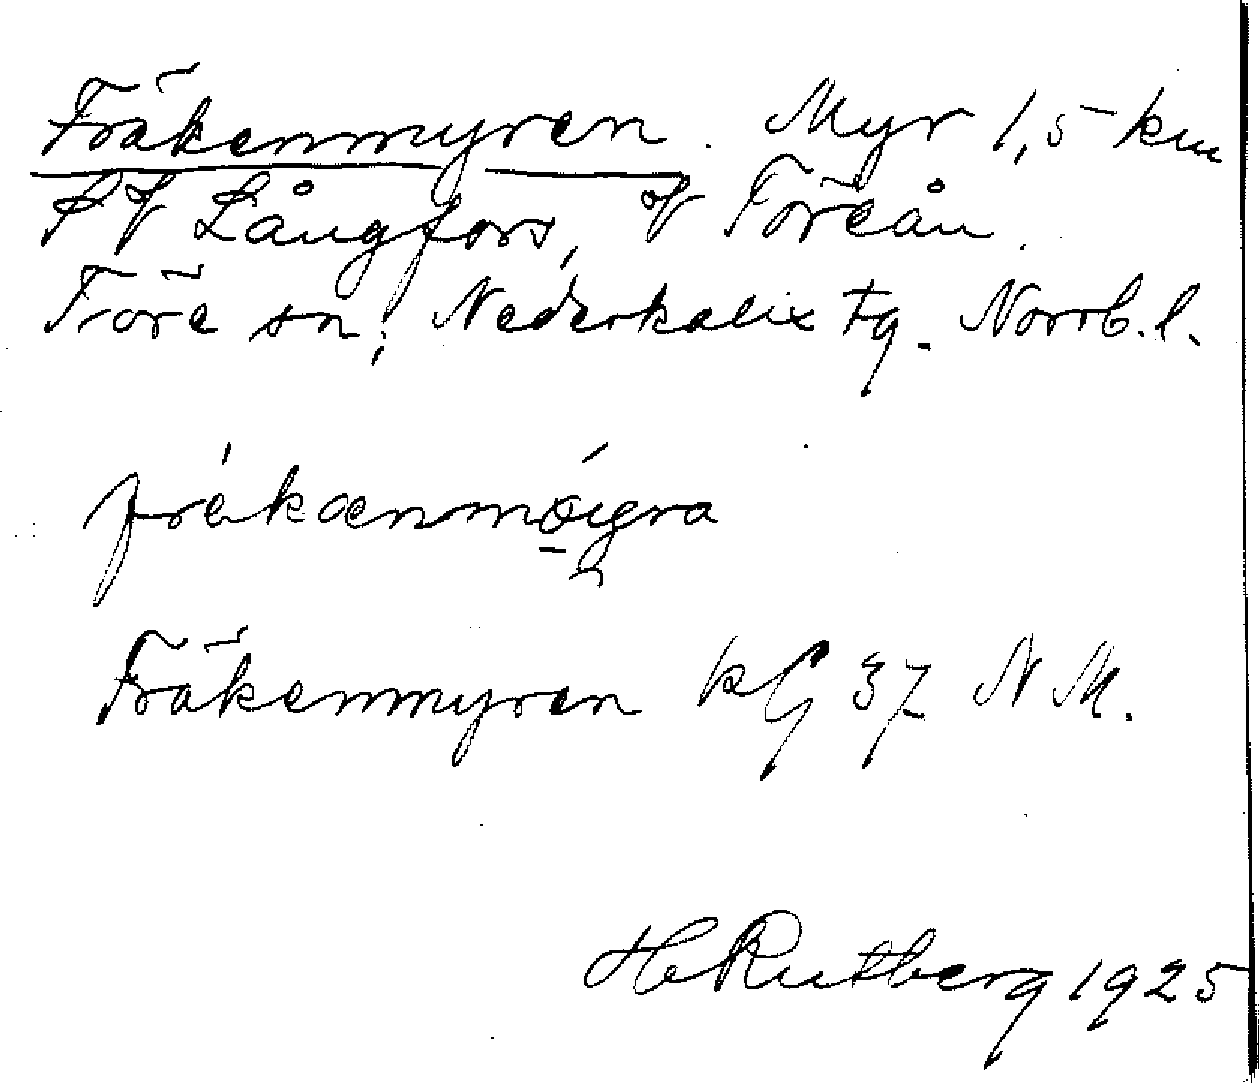 Fräkenmyren. Myr 1,5 km
SV Långfors, V Töreån.
Töre sn, Nederkalix tg. Norrb. l.
Fräkenmyren kG 37 NM.
H Rutberg 1925